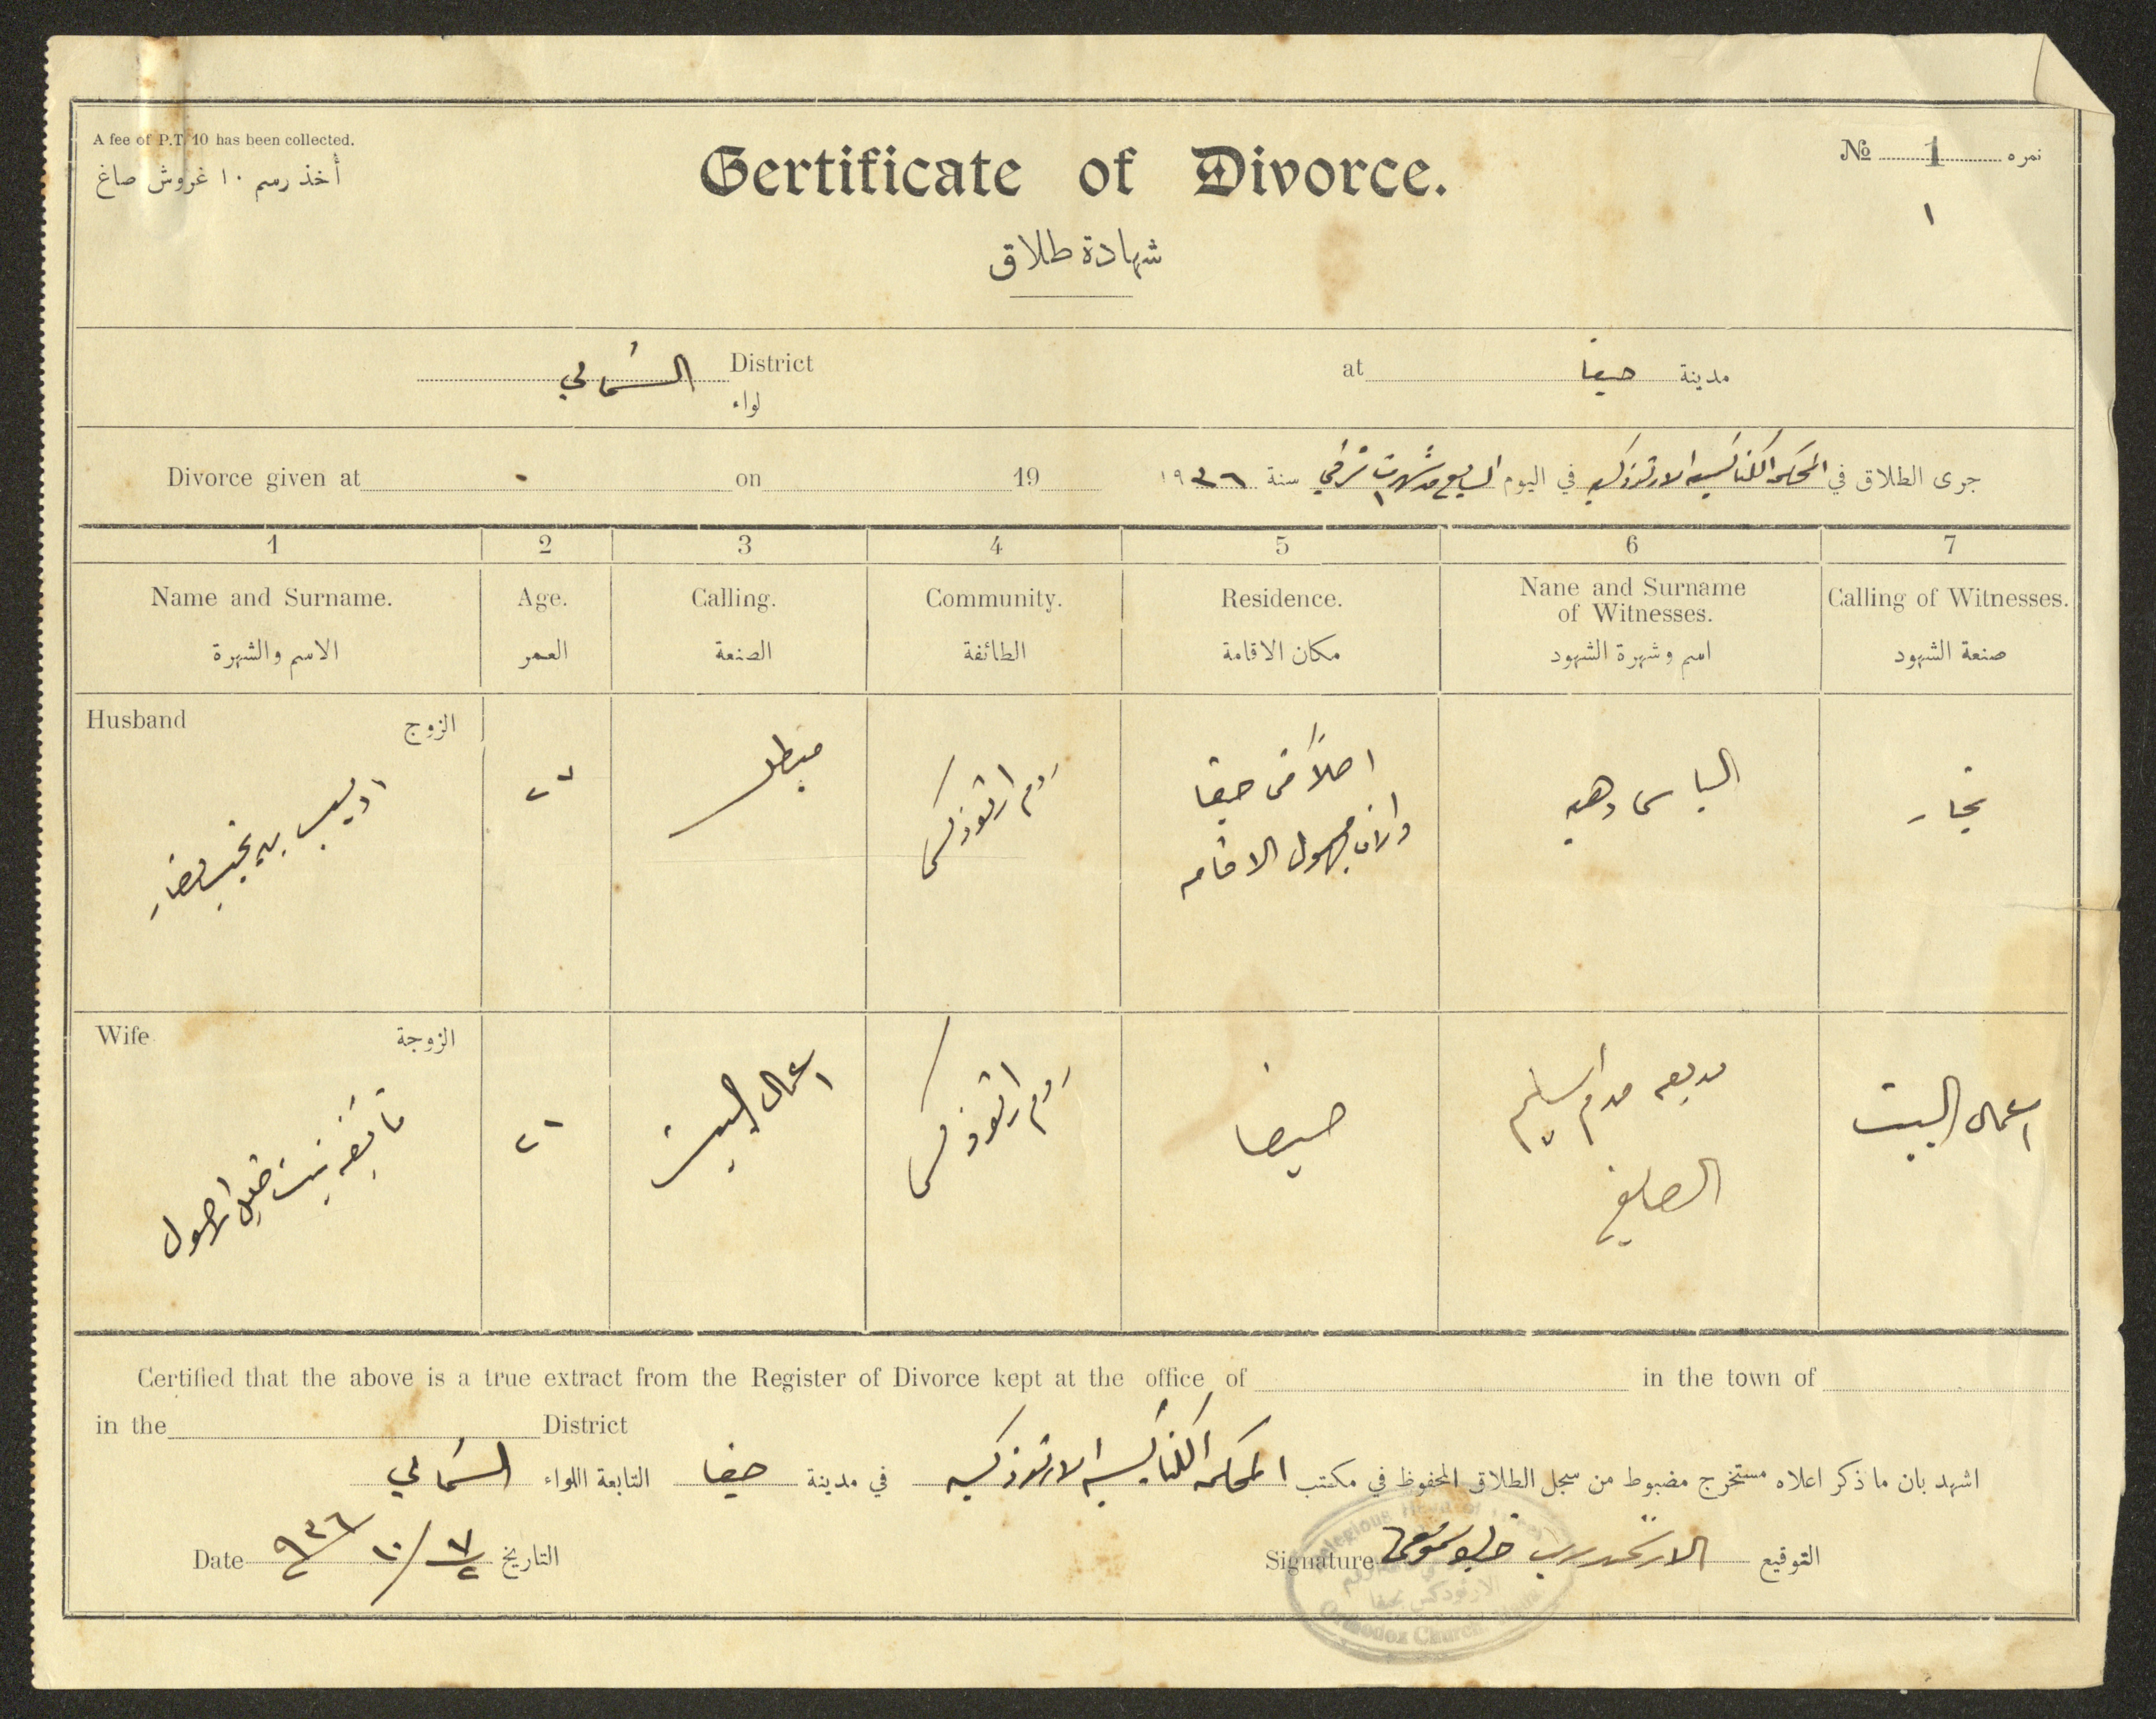 A fee of P.T. 10 has been collected.
أخذ رسم ١٠ غروش صاغ
Certificate of Divorce.
شهادة طلاق
No 1 نمره
١
District الشمالي
لواء
at حيفا مدينة
Divorce given at on 19
جرى الطلاق في المحكمة الكنائسية الارثوذكسية في اليوم السابع من شهر ت١ شرقي سنة ١٩٣٦
1 2 3 4 5 6 7
Name and Surname. Age. Calling. Community. Residence. Nane and Surname of Witnesses. Calling of Witnesses.
الاسم والشهرة العمر الصنعة الطائفة مكان الاقامة اسم وشهرة الشهود صنعة الشهود
Husband الزوج
اديب بن نجيب
٢٧
مبطل
روم ارثوذكس
اصلاً من حيفا
والان مجهول الاقامه
الياس وهبه
نجار
Wife الزوجة
بنت خليل
٢١
اعمال البيت
روم ارثوذكس
حيفا
بديعه مدام سليم
الصايغ
اعمال البيت
Certified that the above is a true extract from the Register of Divorce kept at the office of in the town of
in the District
اشهد بان ما ذكر اعلاه مستخرج مضبوط من سجل الطلاق المحفوظ في مكتب المحكمة الكنائسية الارثوذكسية في مدينة حيفا التابعة اللواء الشمالي
Date ٧/١٠/٩٣٦ التاريخ
Signature الارشمندريت التوقيع
Orthodox Church
الارثوذكس بحيفا